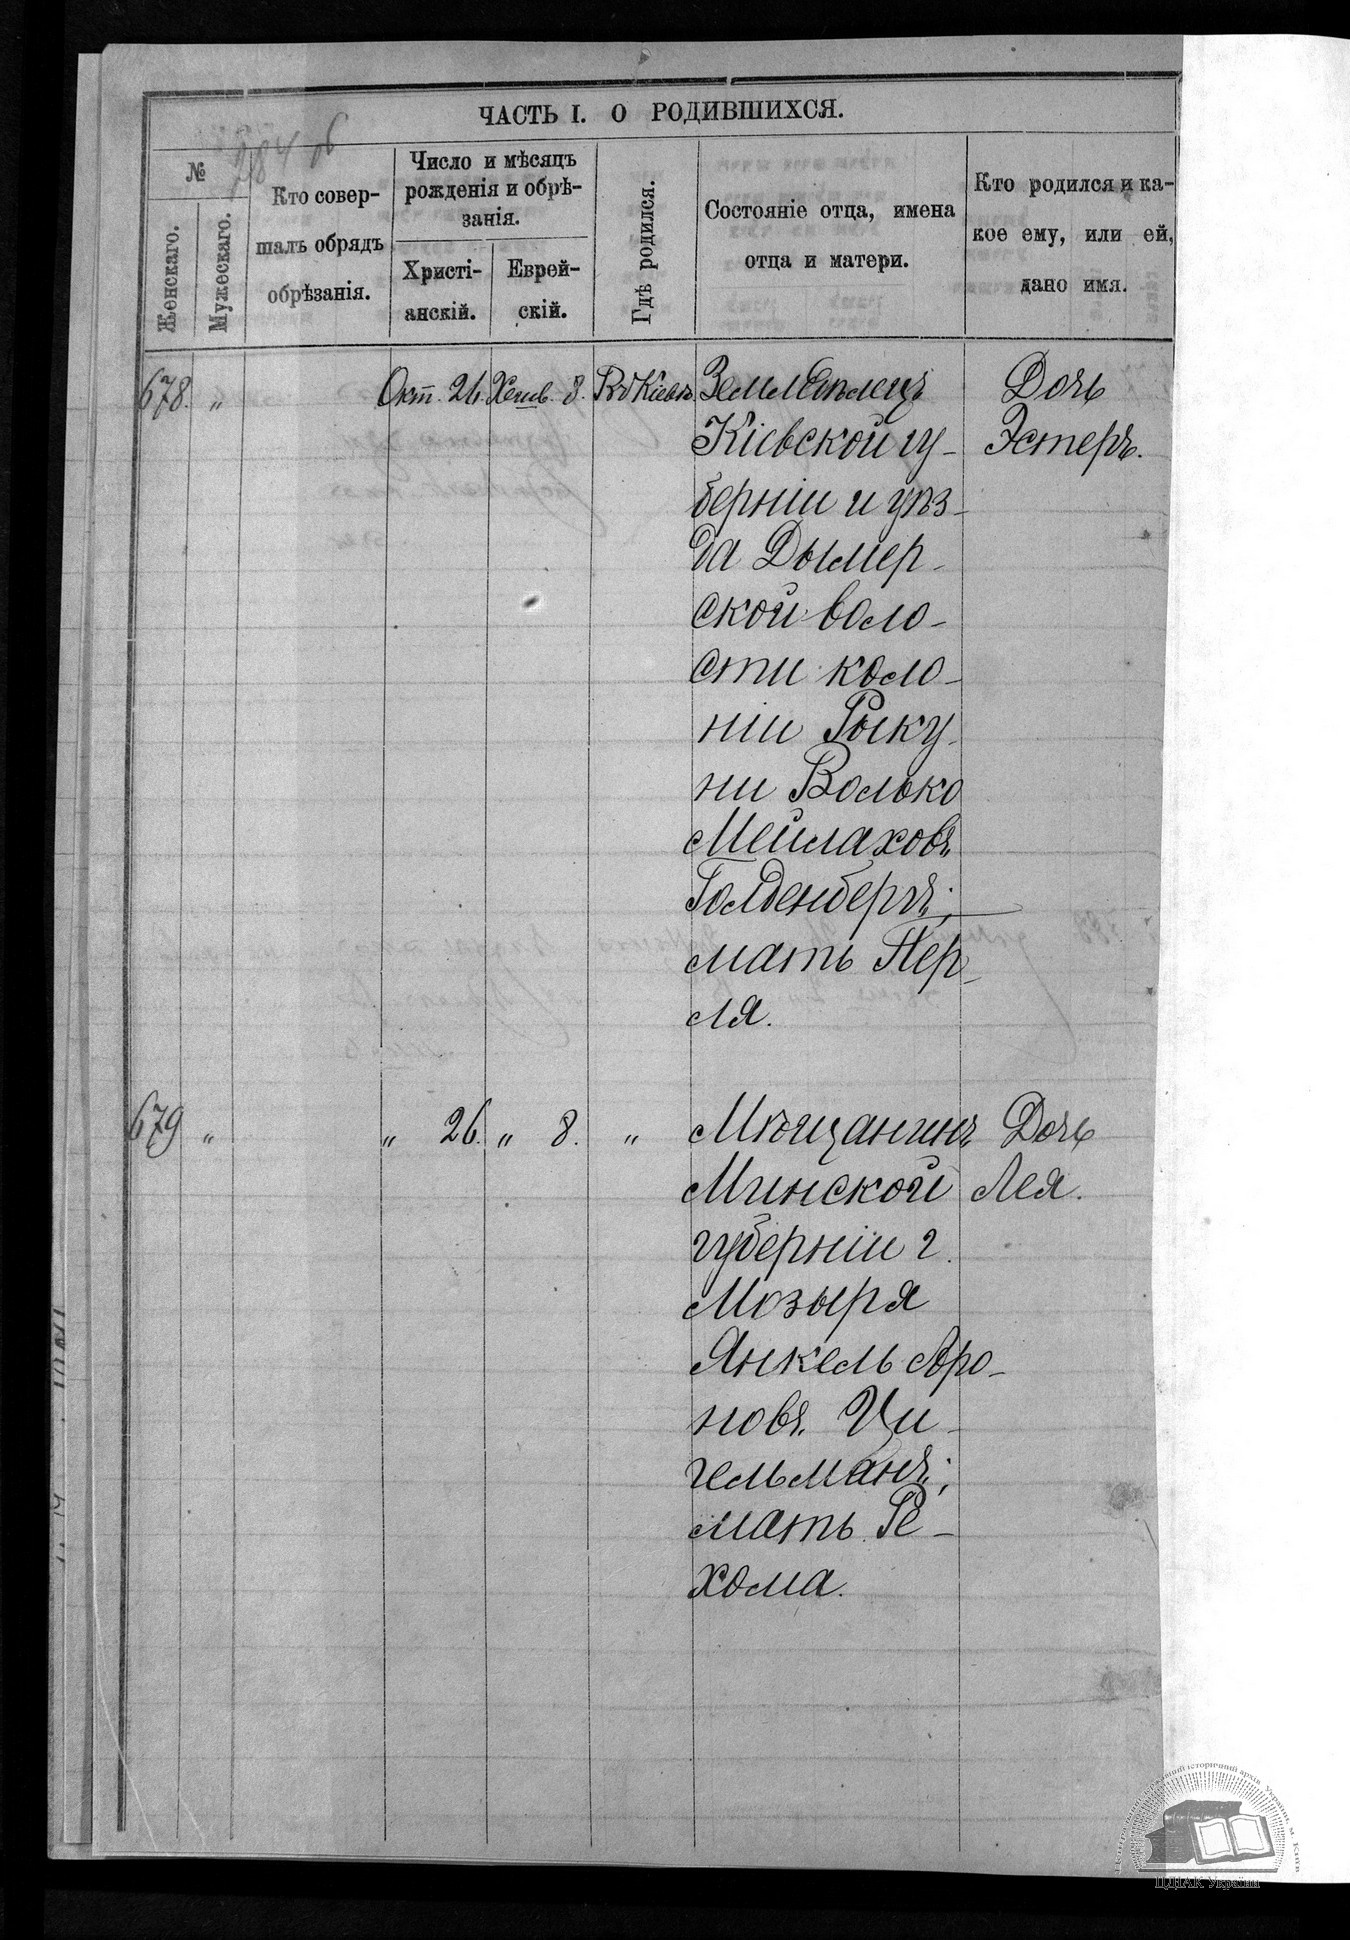 ЧАСТЬ I. О РОДИВШИХСЯ.
№
Женскаго.
Мужескаго.
Кто совер-
шалъ обрядъ
обрѣзанія.
Число и мѣсяцъ
рожденія и обрѣ-
занія.
Христі-
анскій.
Еврей-
скій.
Гдѣ родился.
Состояніе отца, имена
отца и матери.
Кто родился и ка-
кое ему, или ей,
дано имя.
678. „ Окт. 26. Хешв. 8. Въ Кіевѣ. Землѣдѣлецъ Дочь
Кіевской гу- Эстеръ.
берніи и уѣз-
да Дымер-
ской воло-
сти коло-
ніи Рыку-
ни Волько
Мейлаховъ
Голденбергъ;
мать Пер-
ля.
679 „ „ 26. „ 8. „ Мѣщанинъ Дочь
Минской Лея.
губерніи г.
Мозыря
Янкель Аро-
новъ Ци-
гельманъ;
мать Ре-
хома.
ЦДІАК України